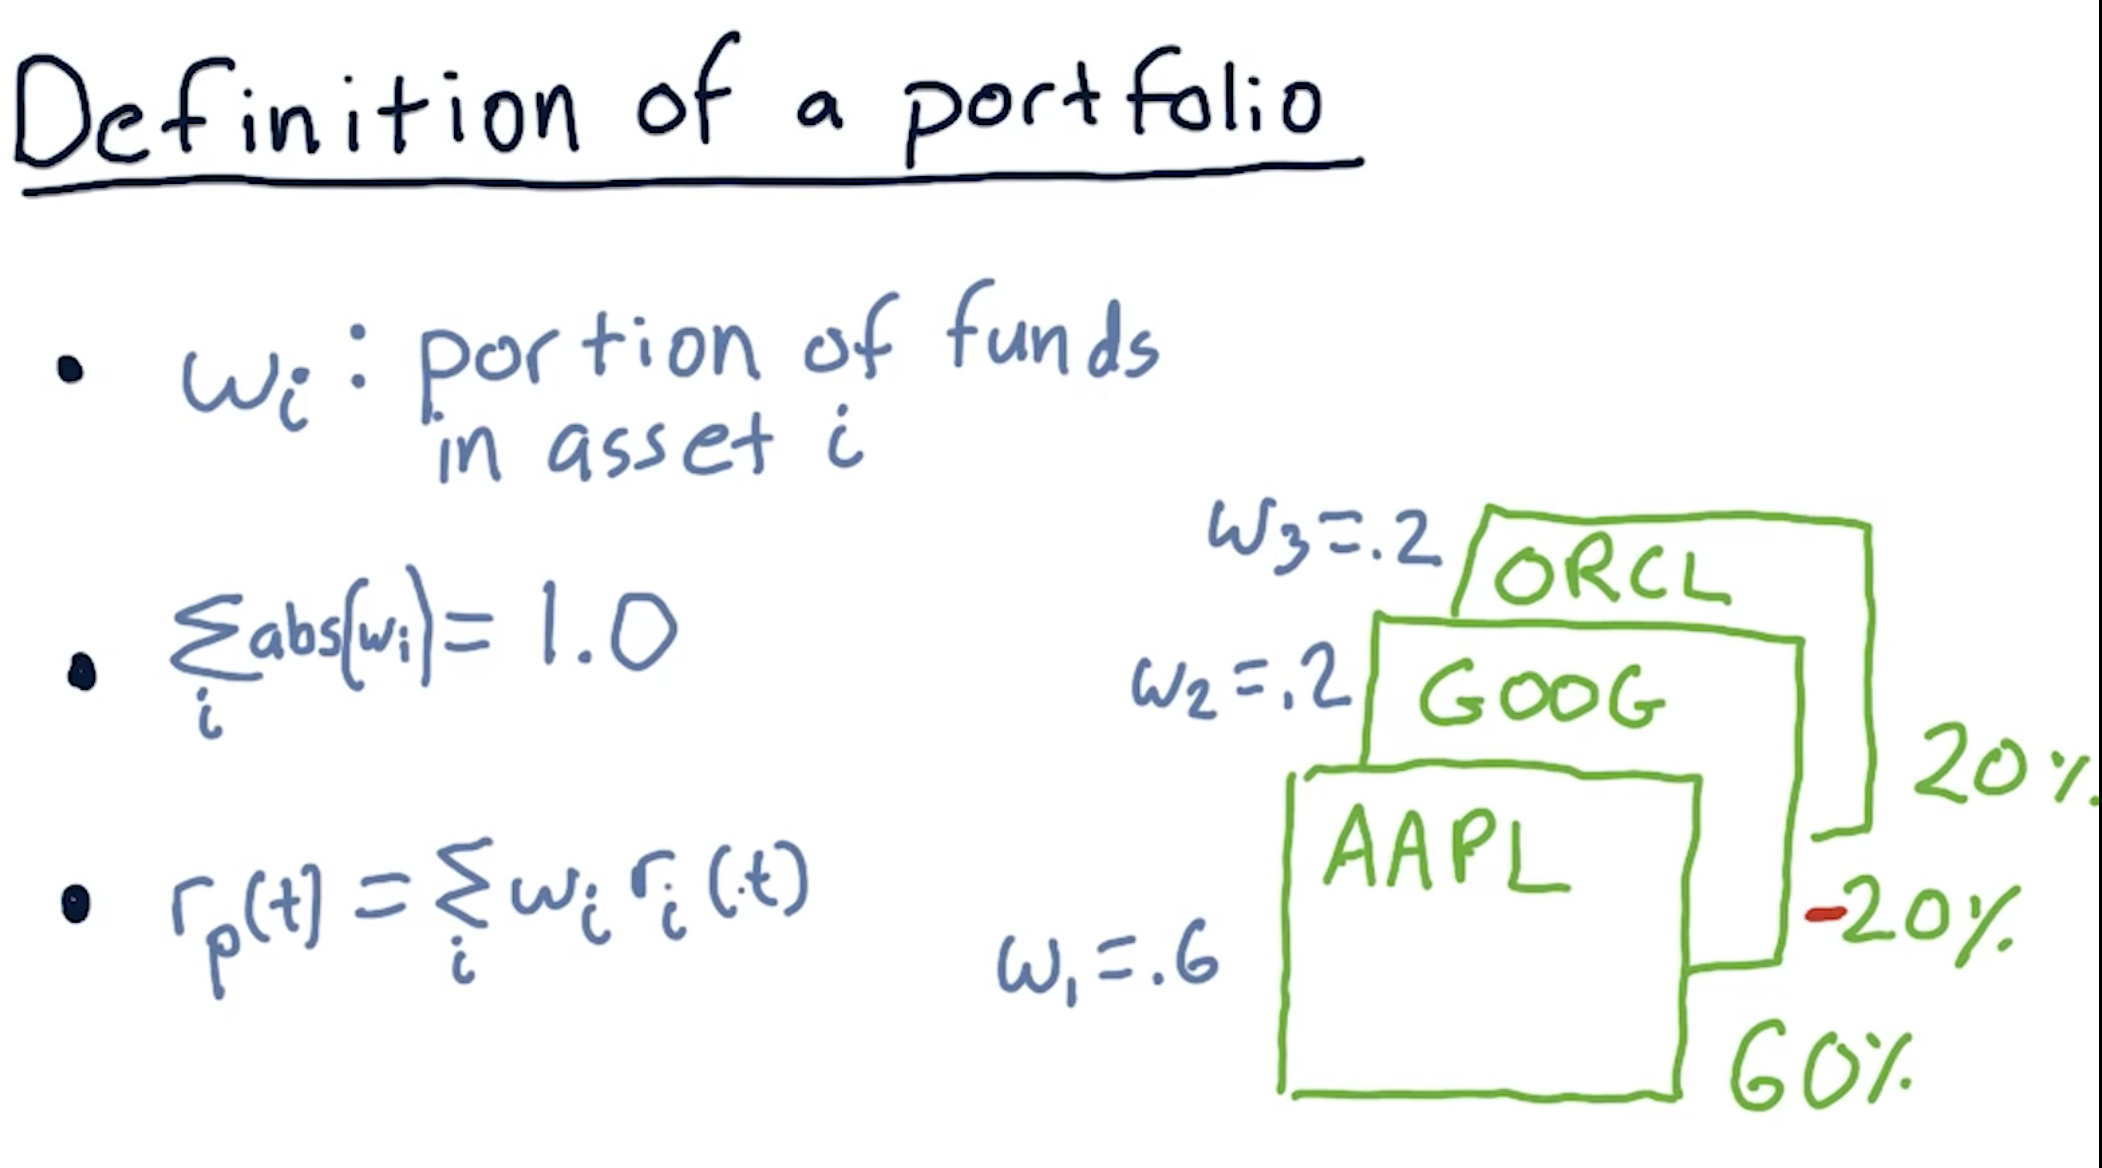 Definition of a portfolio
• wᵢ : portion of funds
in asset i
• Σ abs(wᵢ) = 1.0
i
• rₚ(t) = Σ wᵢ rᵢ(t)
i
w₃ = .2
ORCL
20%
w₂ = .2
GOOG
-20%
w₁ = .6
AAPL
60%